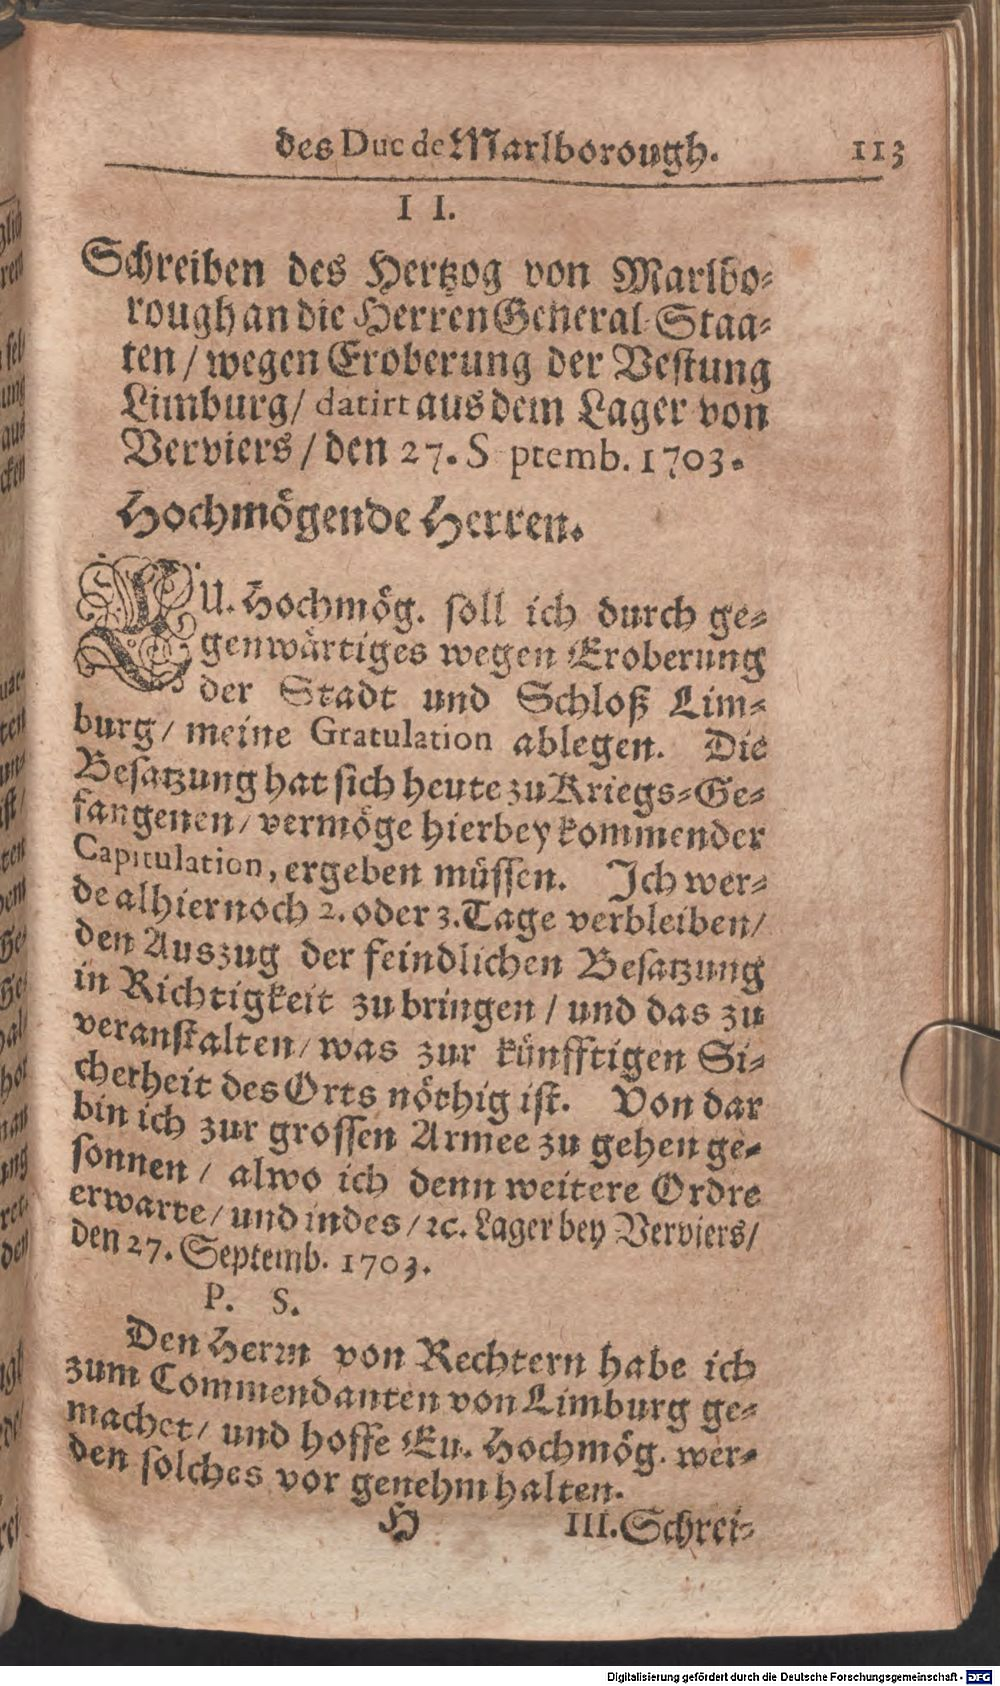 des Duc de Marlborough. 113
II.
Schreiben des Hertzog von Marlbo-
rough an die Herren General-Staa-
ten / wegen Eroberung der Vestung
Limburg / datirt aus dem Lager von
Verviers / den 27. S ptemb. 1703.
Hochmögende Herren.
EU. Hochmög. soll ich durch ge-
genwärtiges wegen Eroberung
der Stadt und Schloß Lim-
burg / meine Gratulation ablegen. Die
Besatzung hat sich heute zu Kriegs-Ge-
fangenen / vermöge hierbey kommender
Capitulation, ergeben müssen. Ich wer-
de alhier noch 2. oder 3. Tage verbleiben /
den Auszug der feindlichen Besatzung
in Richtigkeit zu bringen / und das zu
veranstalten / was zur künfftigen Si-
cherheit des Orts nöthig ist. Von dar
bin ich zur grossen Armee zu gehen ge-
sonnen / alwo ich denn weitere Ordre
erwarte / und indes / ꝛc. Lager bey Verviers /
den 27. Septemb. 1703.
P. S.
Den Herrn von Rechtern habe ich
zum Commendanten von Limburg ge-
machet / und hoffe Eu. Hochmög. wer-
den solches vor genehm halten.
H III. Schrei-
Digitalisierung gefördert durch die Deutsche Forschungsgemeinschaft - DFG